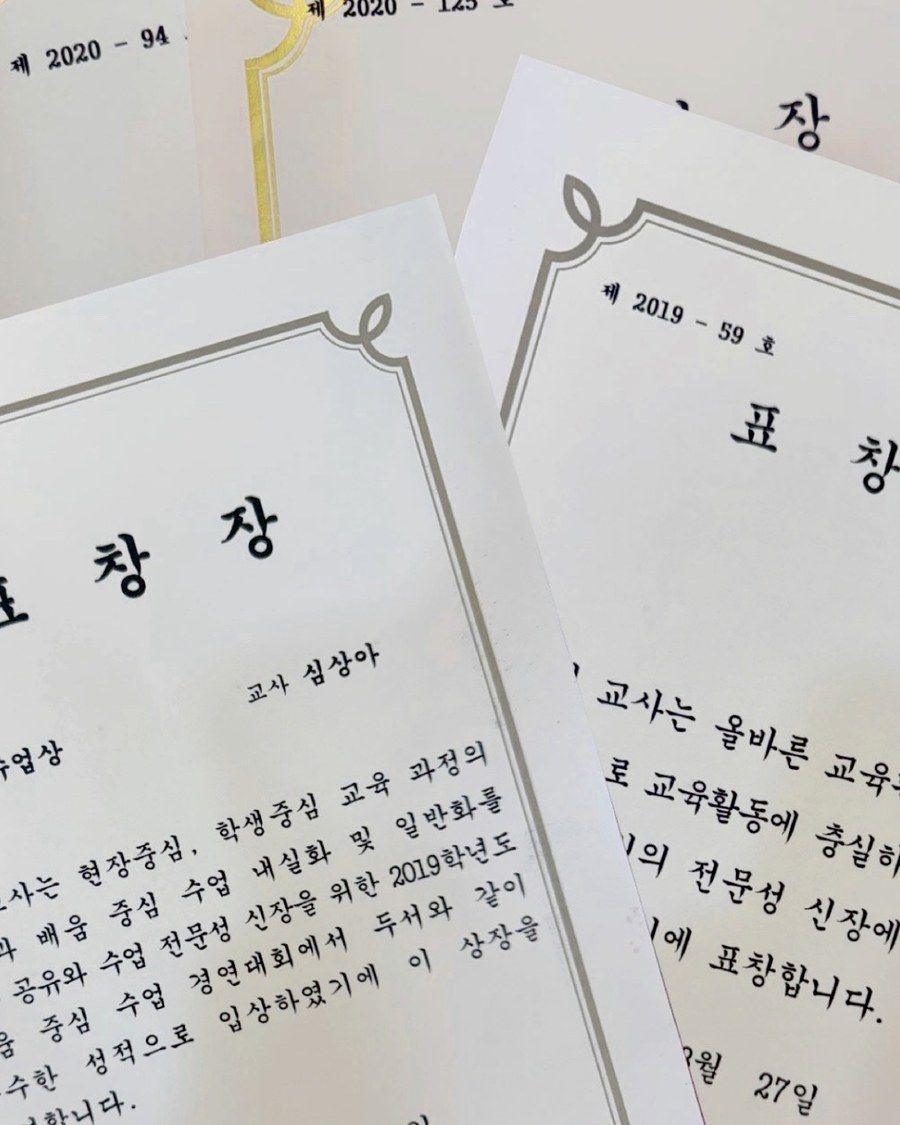 제 2020 - 94
제 2020 - 125 호
장
제 2019 - 59 호
표 창
교사는 올바른
로 교육활동에
의 전문성 신장에
에 표창합니다.
27일
표 창 장
교사 심상아
수업상
현장중심, 학생중심 교육 과정의
배움 중심 수업 내실화 및 일반화를
공유와 수업 전문성 신장을 위한 2019학년도
중심 수업 경연대회에서 두서와 같이
성적으로 입상하였기에 이 상장을